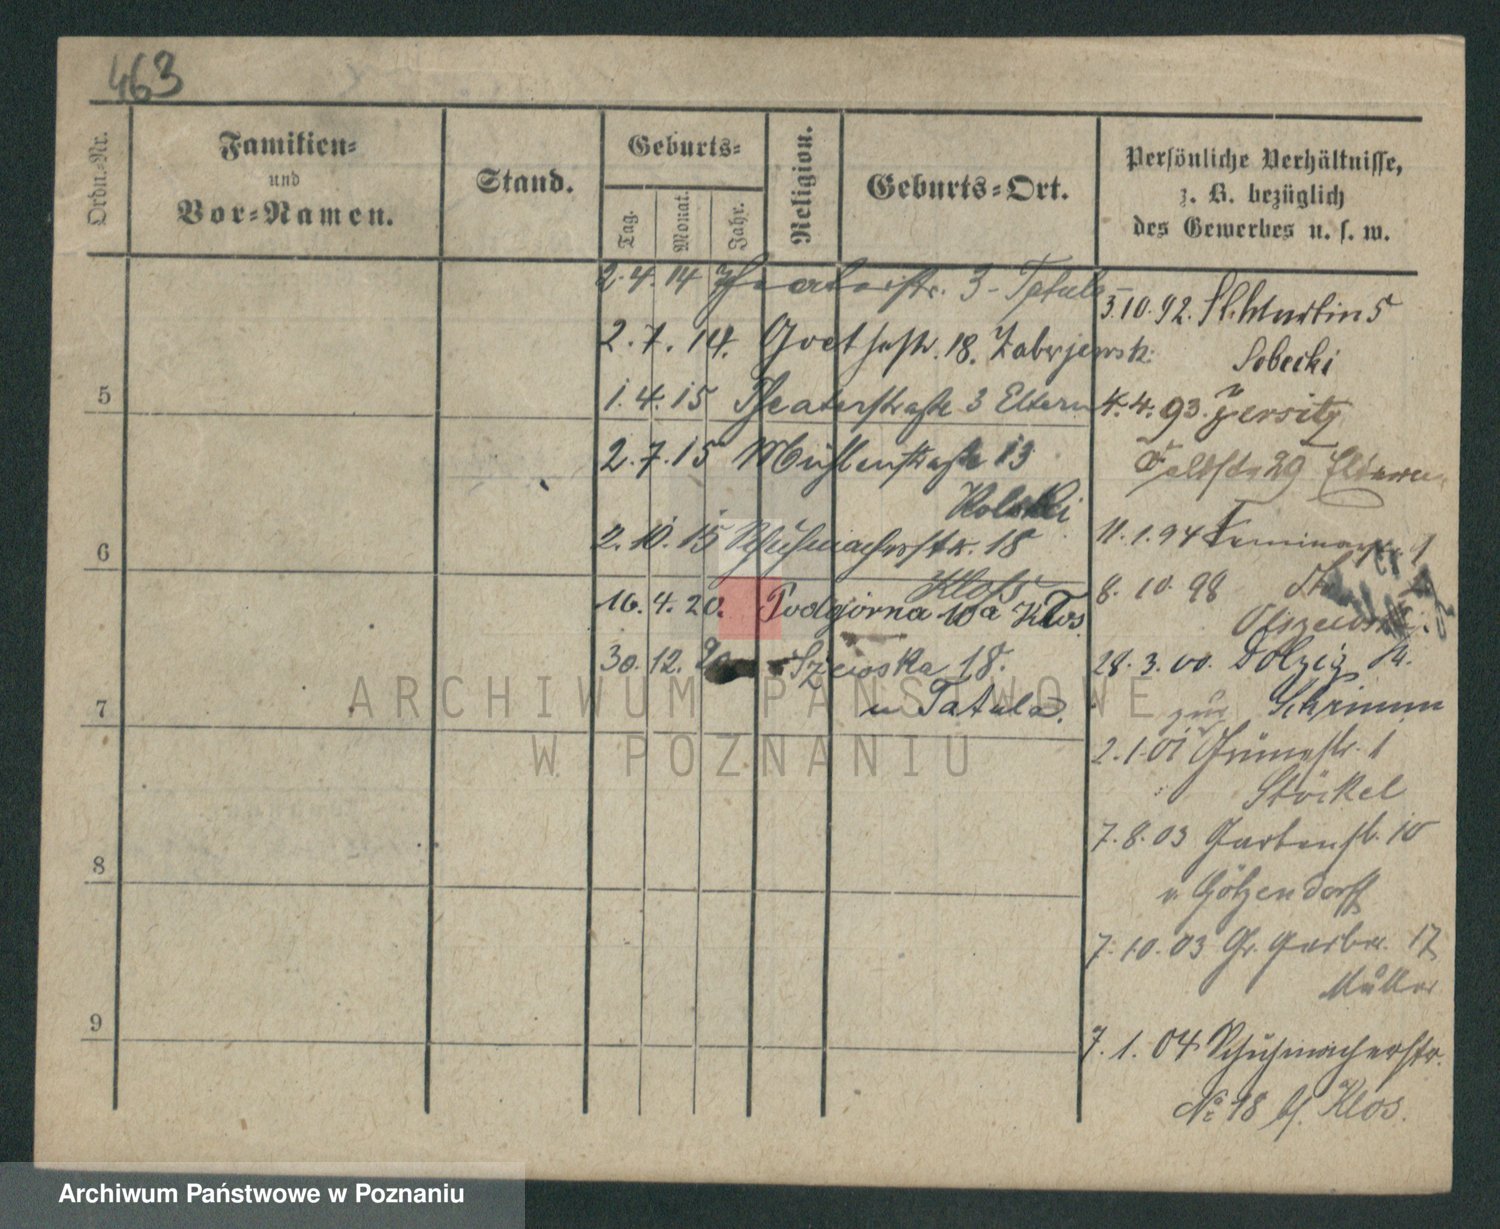 463
Ordn.-Nr.
Familien=
und
Vor=Namen.
Stand.
Geburts=
Tag.
Monat.
Jahr.
Religion.
Geburts=Ort.
Persönliche Verhältnisse,
z. B. bezüglich
des Gewerbes u. s. w.
2.4.14 Theaterstr. 3 - Tatula
2.7.14. Goethestr. 18.
1.4.15 Theaterstraße 3 Eltern
2.7.15 Mühlenstraße 13
Kolski
2.10.15 Schuhmacherstr. 18
Kloss
16.4.20. Podgórna 10a Klos
30.12.20 Szewska 18.
u Tatula.
3.10.92. St. Martin 5
Sobecki
4.4.93. Jersitz
Feldstr 29 Eltern
11.1.94
8.10.98
28.3.00. Dolzig Kr.
Schrimm
2.1.01 Grünestr. 1
Stöckel
7.8.03 Gartenstr. 10
v. Götzendorff
7.10.03 Gr. Gerber. 17
Müller
7.1.04 Schuhmacherstr.
No 18 bei Klos.
5
6
7
8
9
ARCHIWUM PAŃSTWOWE
W POZNANIU
Archiwum Państwowe w Poznaniu